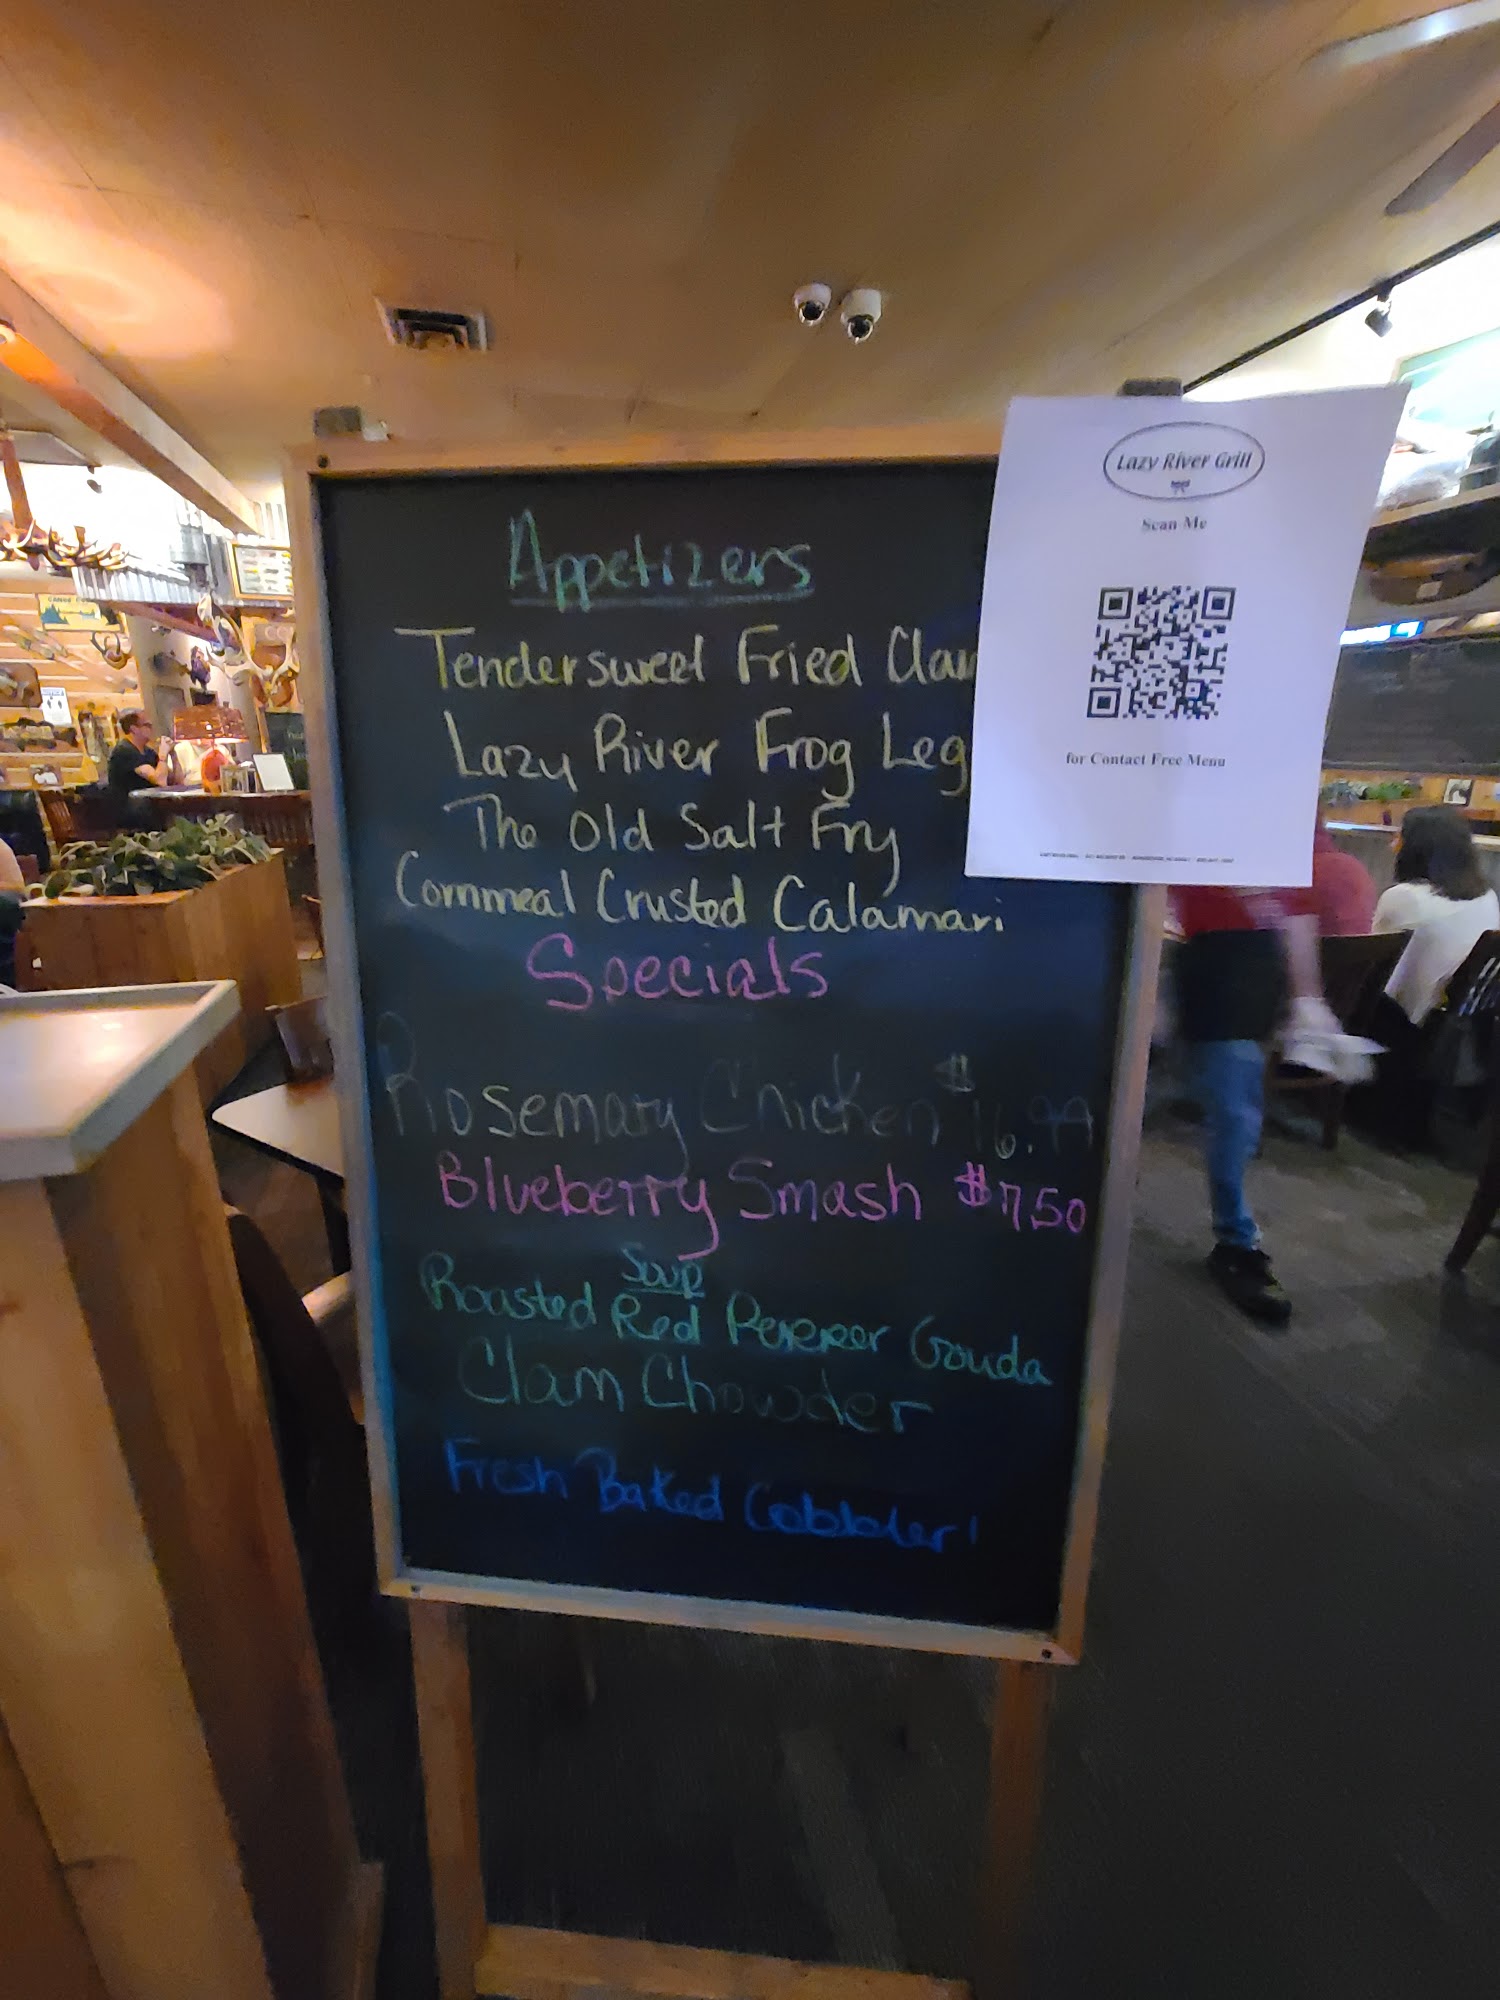 Appetizers
Tendersweet Fried Clam
Lazy River Frog Leg
The Old Salt Fry
Cornmeal Crusted Calamari
Specials
Rosemary Chicken $16.99
Blueberry Smash $7.50
Soup
Roasted Red Pepper Gouda
Clam Chowder
Fresh Baked Cobbler!
Lazy River Grill
Scan Me
for Contact Free Menu